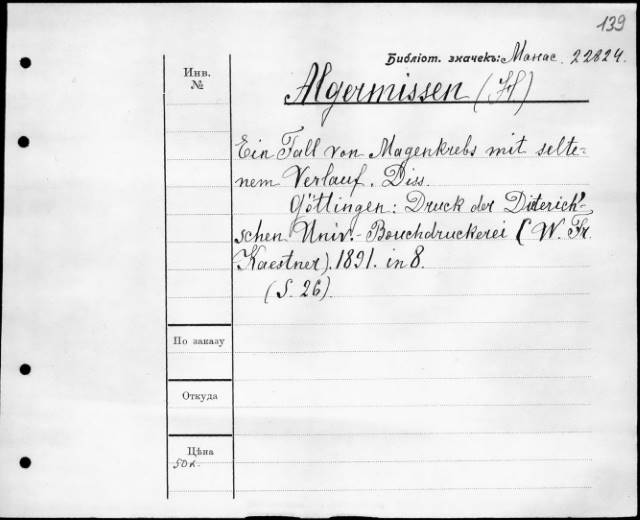 139
Библіот. значекъ: Манас. 22824.
Инв.
№
Algermissen (H)
Ein Fall von Magenkrebs mit selte-
nem Verlauf. Diss.
Göttingen: Druck der Dieterich'-
schen Univ.- Bouchdruckerei (W. Fr.
Kaestner). 1891. in 8.
(S. 26)
По заказу
Откуда
Цѣна
50 к.